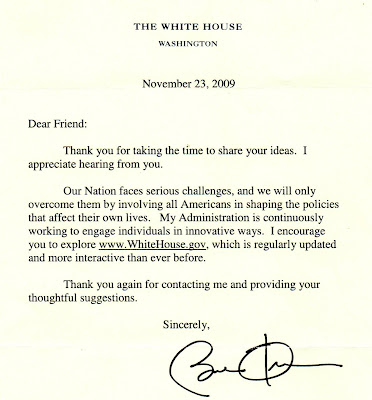 THE WHITE HOUSE
WASHINGTON
November 23, 2009
Dear Friend:
Thank you for taking the time to share your ideas. I
appreciate hearing from you.
Our Nation faces serious challenges, and we will only
overcome them by involving all Americans in shaping the policies
that affect their own lives. My Administration is continuously
working to engage individuals in innovative ways. I encourage
you to explore www.WhiteHouse.gov, which is regularly updated
and more interactive than ever before.
Thank you again for contacting me and providing your
thoughtful suggestions.
Sincerely,